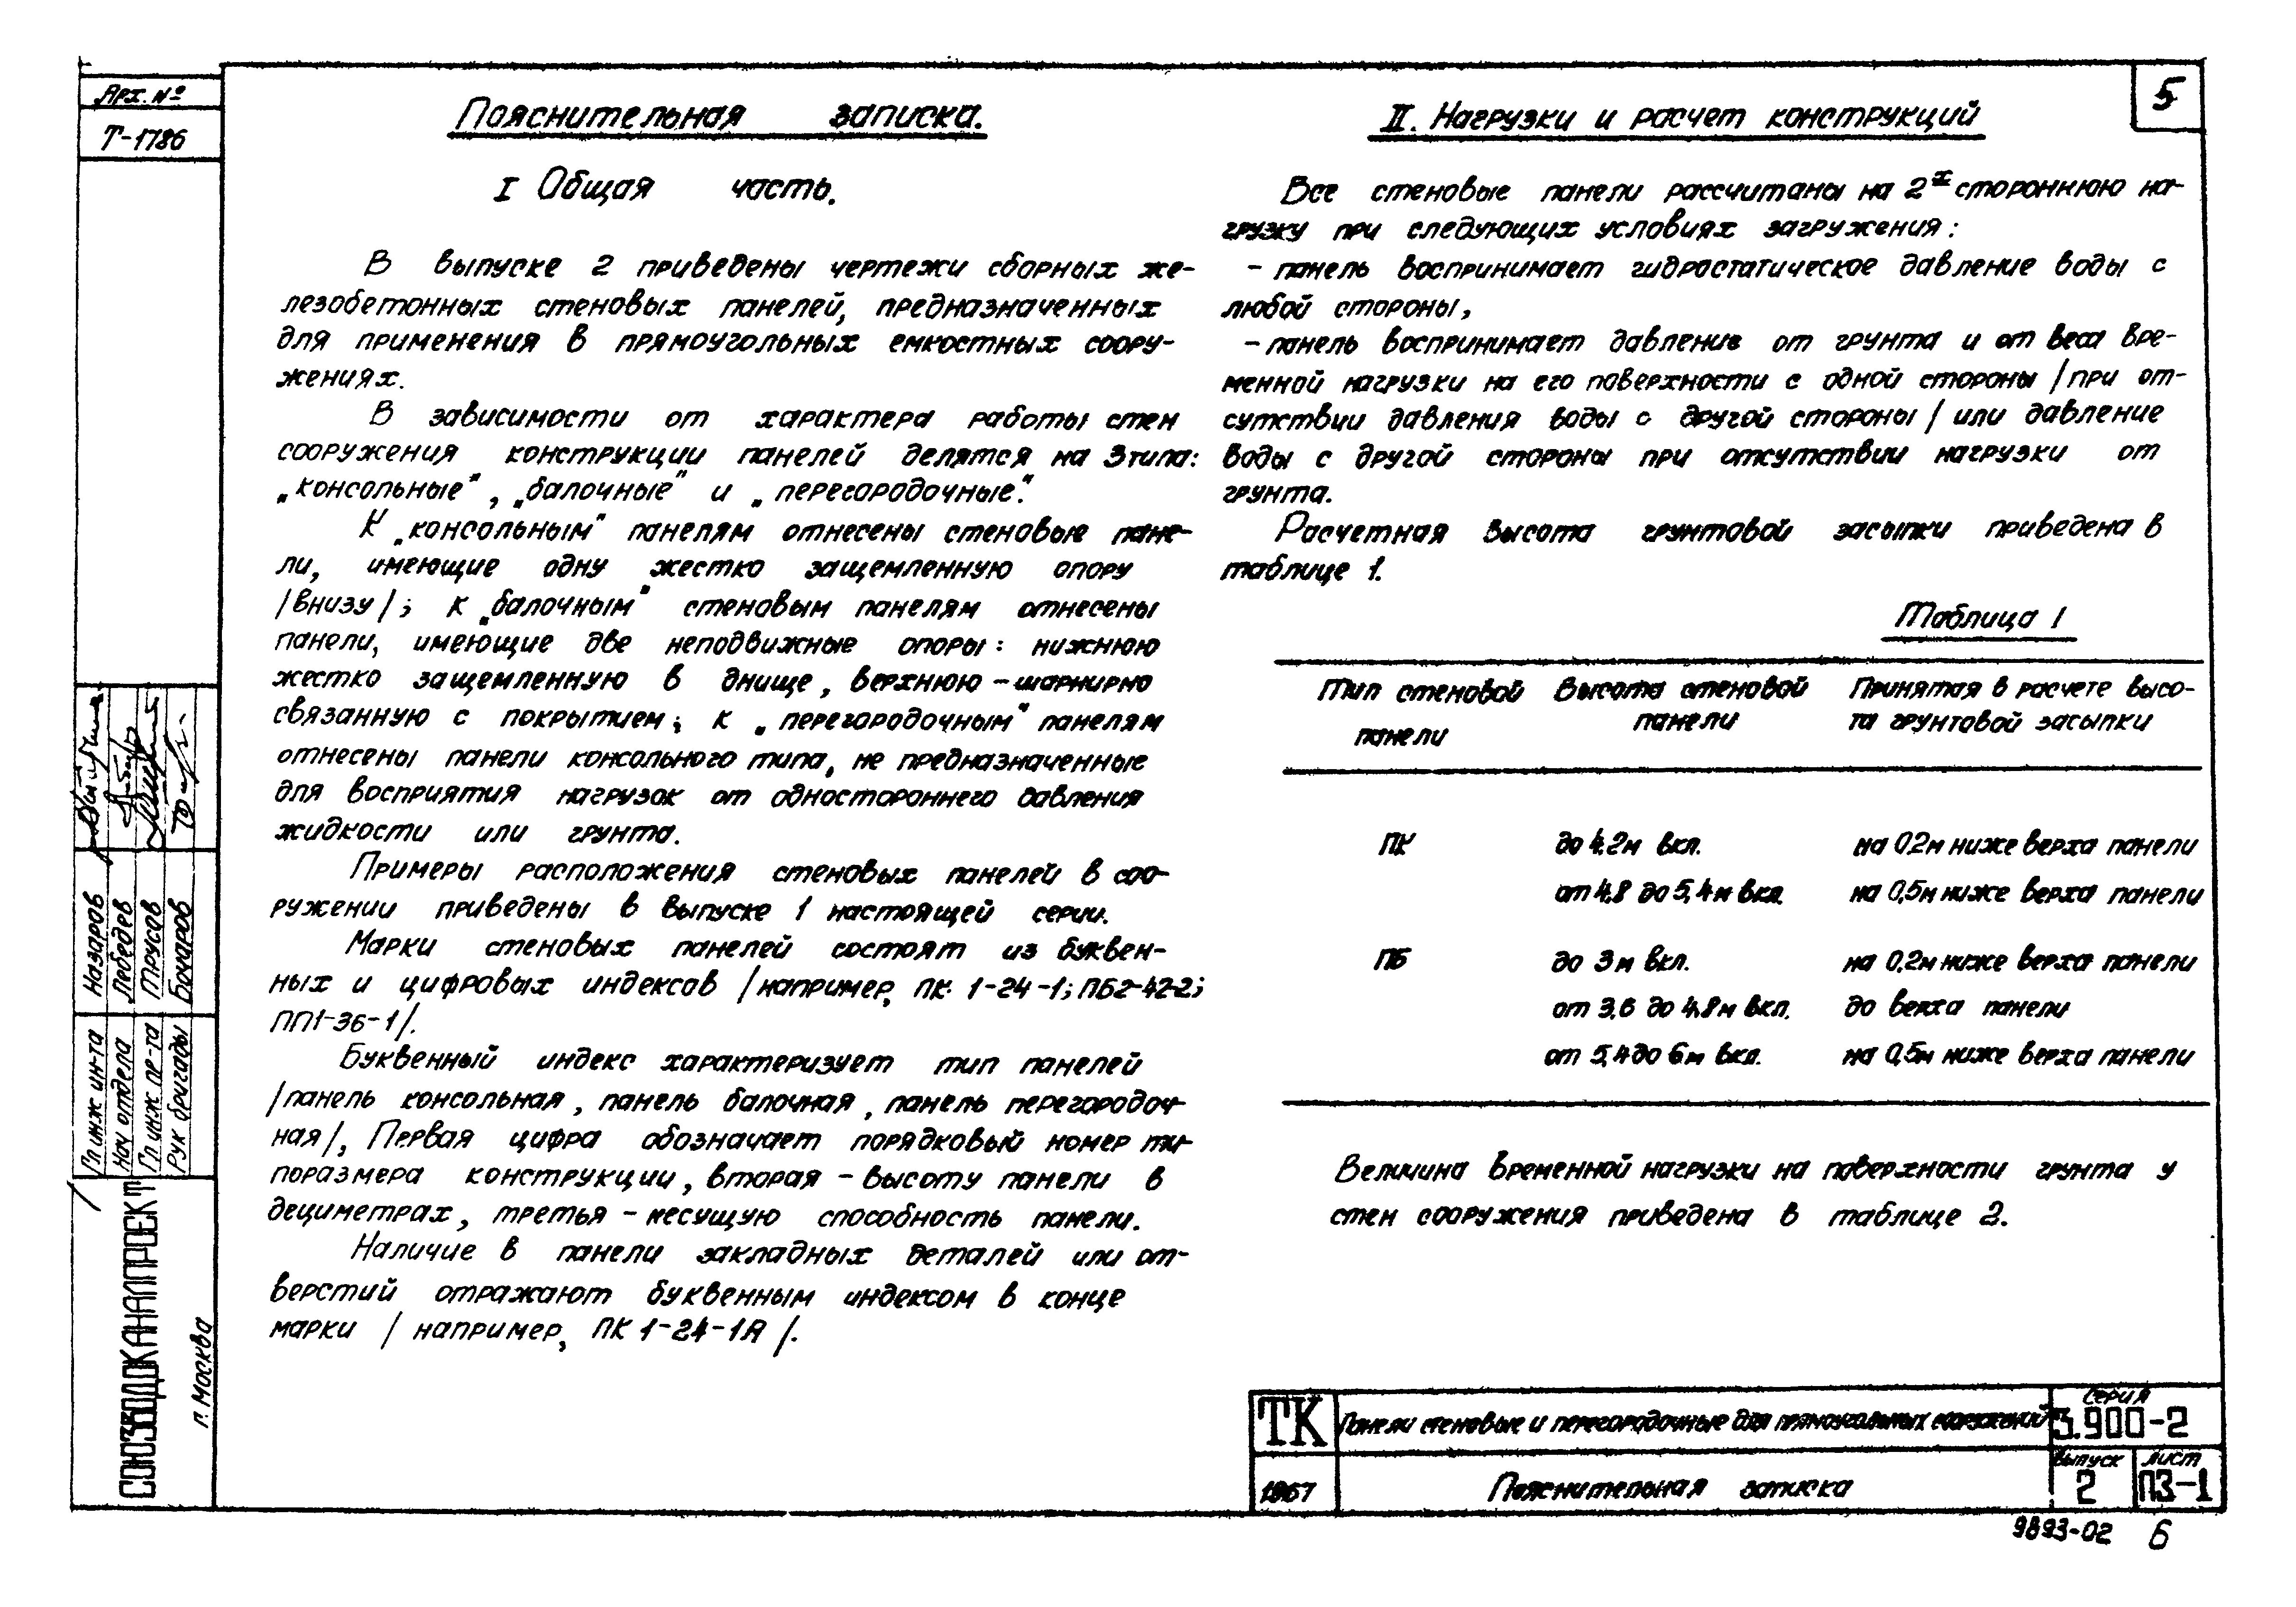 Арх. №
Т-1786
5
Пояснительная записка.
I Общая часть.
В выпуске 2 приведены чертежи сборных же-
лезобетонных стеновых панелей, предназначенных
для применения в прямоугольных емкостных соору-
жениях.
В зависимости от характера работы стен
сооружения конструкции панелей делятся на 3 типа:
„консольные", „балочные" и „перегородочные".
К „консольным" панелям отнесены стеновые пане-
ли, имеющие одну жестко защемленную опору
/внизу/; к „балочным" стеновым панелям отнесены
панели, имеющие две неподвижные опоры: нижнюю
жестко защемленную в днище, верхнюю – шарнирно
связанную с покрытием; к „перегородочным" панелям
отнесены панели консольного типа, не предназначенные
для восприятия нагрузок от одностороннего давления
жидкости или грунта.
Примеры расположения стеновых панелей в соо-
ружении приведены в выпуске 1 настоящей серии.
Марки стеновых панелей состоят из буквен-
ных и цифровых индексов /например, ПК 1-24-1; ПБ2-42-2;
ПП1-36-1/.
Буквенный индекс характеризует тип панелей
/панель консольная, панель балочная, панель перегородоч-
ная/, Первая цифра обозначает порядковый номер ти-
поразмера конструкции, вторая – высоту панели в
дециметрах, третья – несущую способность панели.
Наличие в панели закладных деталей или от-
верстий отражают буквенным индексом в конце
марки / например, ПК 1-24-1А /.
II. Нагрузки и расчет конструкций
Все стеновые панели рассчитаны на 2х стороннюю на-
грузку при следующих условиях загружения:
– панель воспринимает гидростатическое давление воды с
любой стороны,
– панель воспринимает давление от грунта и от веса вре-
менной нагрузки на его поверхности с одной стороны /при от-
сутствии давления воды с другой стороны/ или давление
воды с другой стороны при отсутствии нагрузки от
грунта.
Расчетная высота грунтовой засыпки приведена в
таблице 1.
Таблица 1
Тип стеновой панели Высота стеновой панели Принятая в расчете высо-
та грунтовой засыпки
ПК до 4,2м вкл. на 0,2м ниже верха панели
от 4,8 до 5,4м вкл. на 0,5м ниже верха панели
ПБ до 3м вкл. на 0,2м ниже верха панели
от 3,6 до 4,8м вкл. до верха панели
от 5,4 до 6м вкл. на 0,5м ниже верха панели
Величина временной нагрузки на поверхности грунта у
стен сооружения приведена в таблице 2.
Гл инж ин-та Назаров
Нач отдела Лебедев
Гл инж пр-та Трусов
Рук бригады Бочаров
СОЮЗВОДОКАНАЛПРОЕКТ
г. Москва
ТК
1967
Панели стеновые и перегородочные для прямоугольных сооружений
Пояснительная записка
Серия
3.900-2
Выпуск
2
Лист
ПЗ-1
9893-02 6